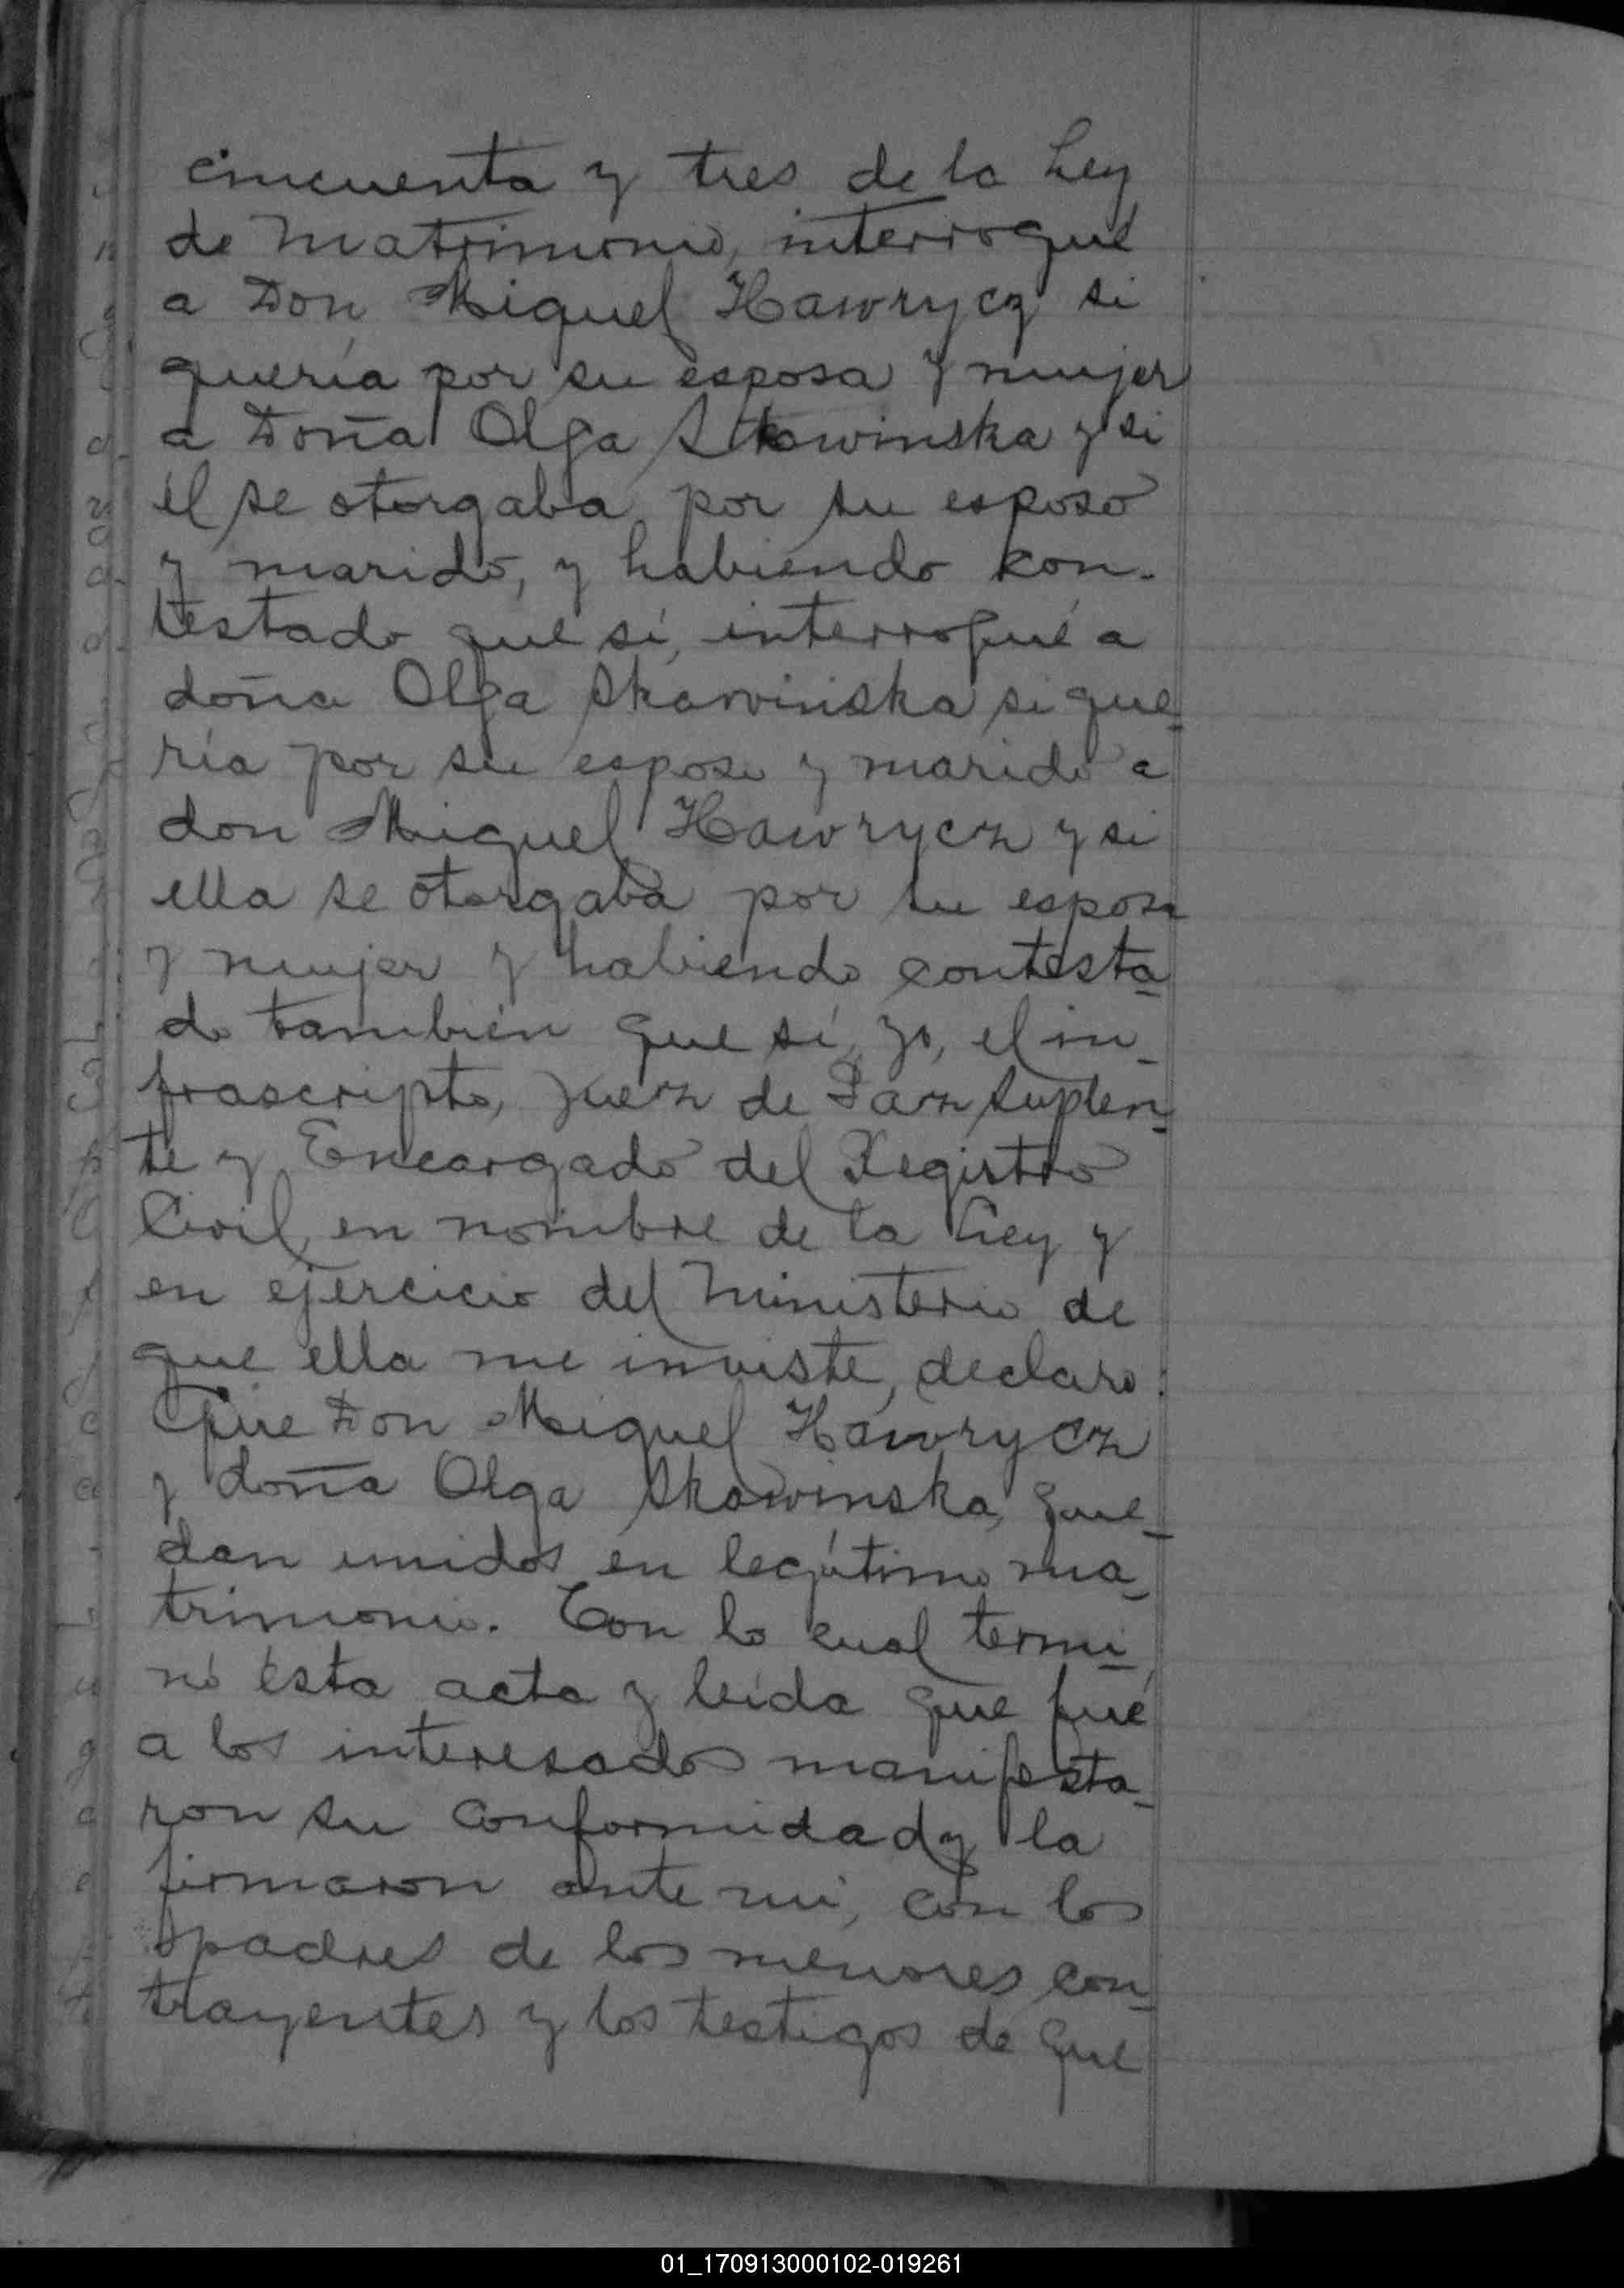 cincuenta y tres de la Ley
de Matrimonio, interrogué
a Don Miguel Hawrycz si
quería por su esposa y mujer
a Doña Olga Skowinska y si
él se otorgaba por su esposo
y marido, y habiendo con-
testado que sí, interrogué a
doña Olga Skowinska si que-
ría por su esposo y marido a
don Miguel Hawrycz y si
ella se otorgaba por su esposa
y mujer y habiendo contesta-
do también que sí, yo, el in-
frascripto, Juez de Paz Suplen-
te y Encargado del Registro
Civil, en nombre de la Ley y
en ejercicio del Ministerio de
que ella me inviste, declaro:
Que Don Miguel Hawrycz
y doña Olga Skowinska, que-
dan unidos en legítimo ma-
trimonio. Con lo cual termi-
nó ésta acta y leída que fué
a los interesados manifesta-
ron su conformidad y la
firmaron ante mí, con los
padres de los menores con-
trayentes y los testigos de que
01_170913000102-019261